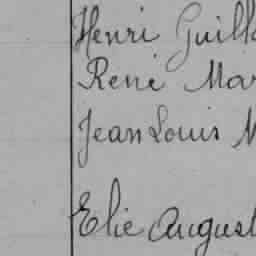 Henri Guill
René Mar
Jean Louis M
Elie August